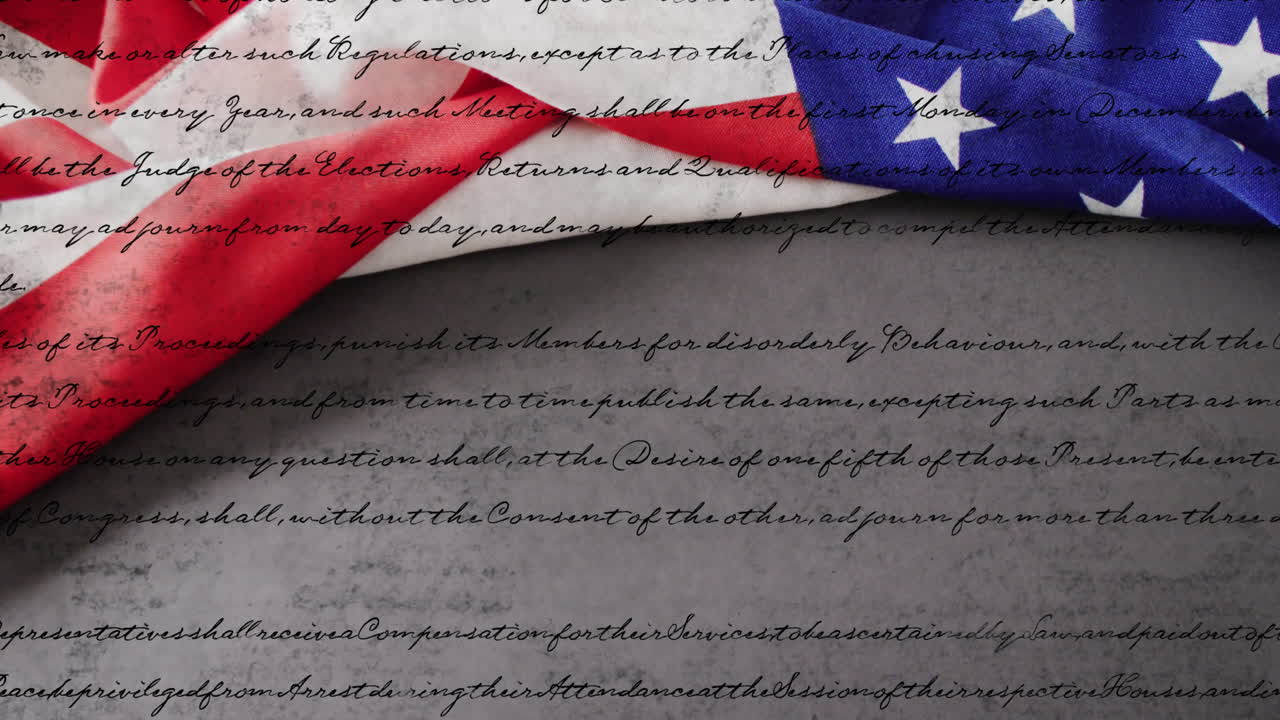 Law make or alter such Regulations, except as to the Places of chusing Senators
once in every Year, and such Meeting shall be on the first Monday in December,
be the Judge of the Elections, Returns and Qualifications of its own Members,
may adjourn from day to day, and may be authorized to compel the Attendance
of its Proceedings, punish its Members for disorderly Behaviour, and, with the
its Proceedings, and from time to time publish the same, excepting such Parts as
House on any question shall, at the Desire of one fifth of those Present, be
of Congress, shall, without the Consent of the other, adjourn for more than three
Representatives shall receive a Compensation for their Services, to be ascertained by Law, and paid out of
Peace, be privileged from Arrest during their Attendance at the Session of their respective Houses, and in